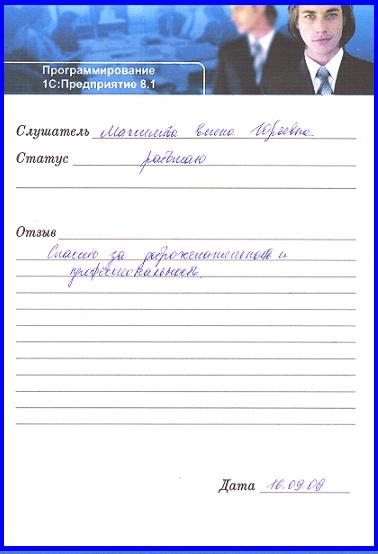 Программирование
1С:Предприятие 8.1
Слушатель Максимова Елена Юрьевна
Статус работаю
Отзыв
Спасибо за доброжелательность и
профессиональность.
Дата 16.09.09